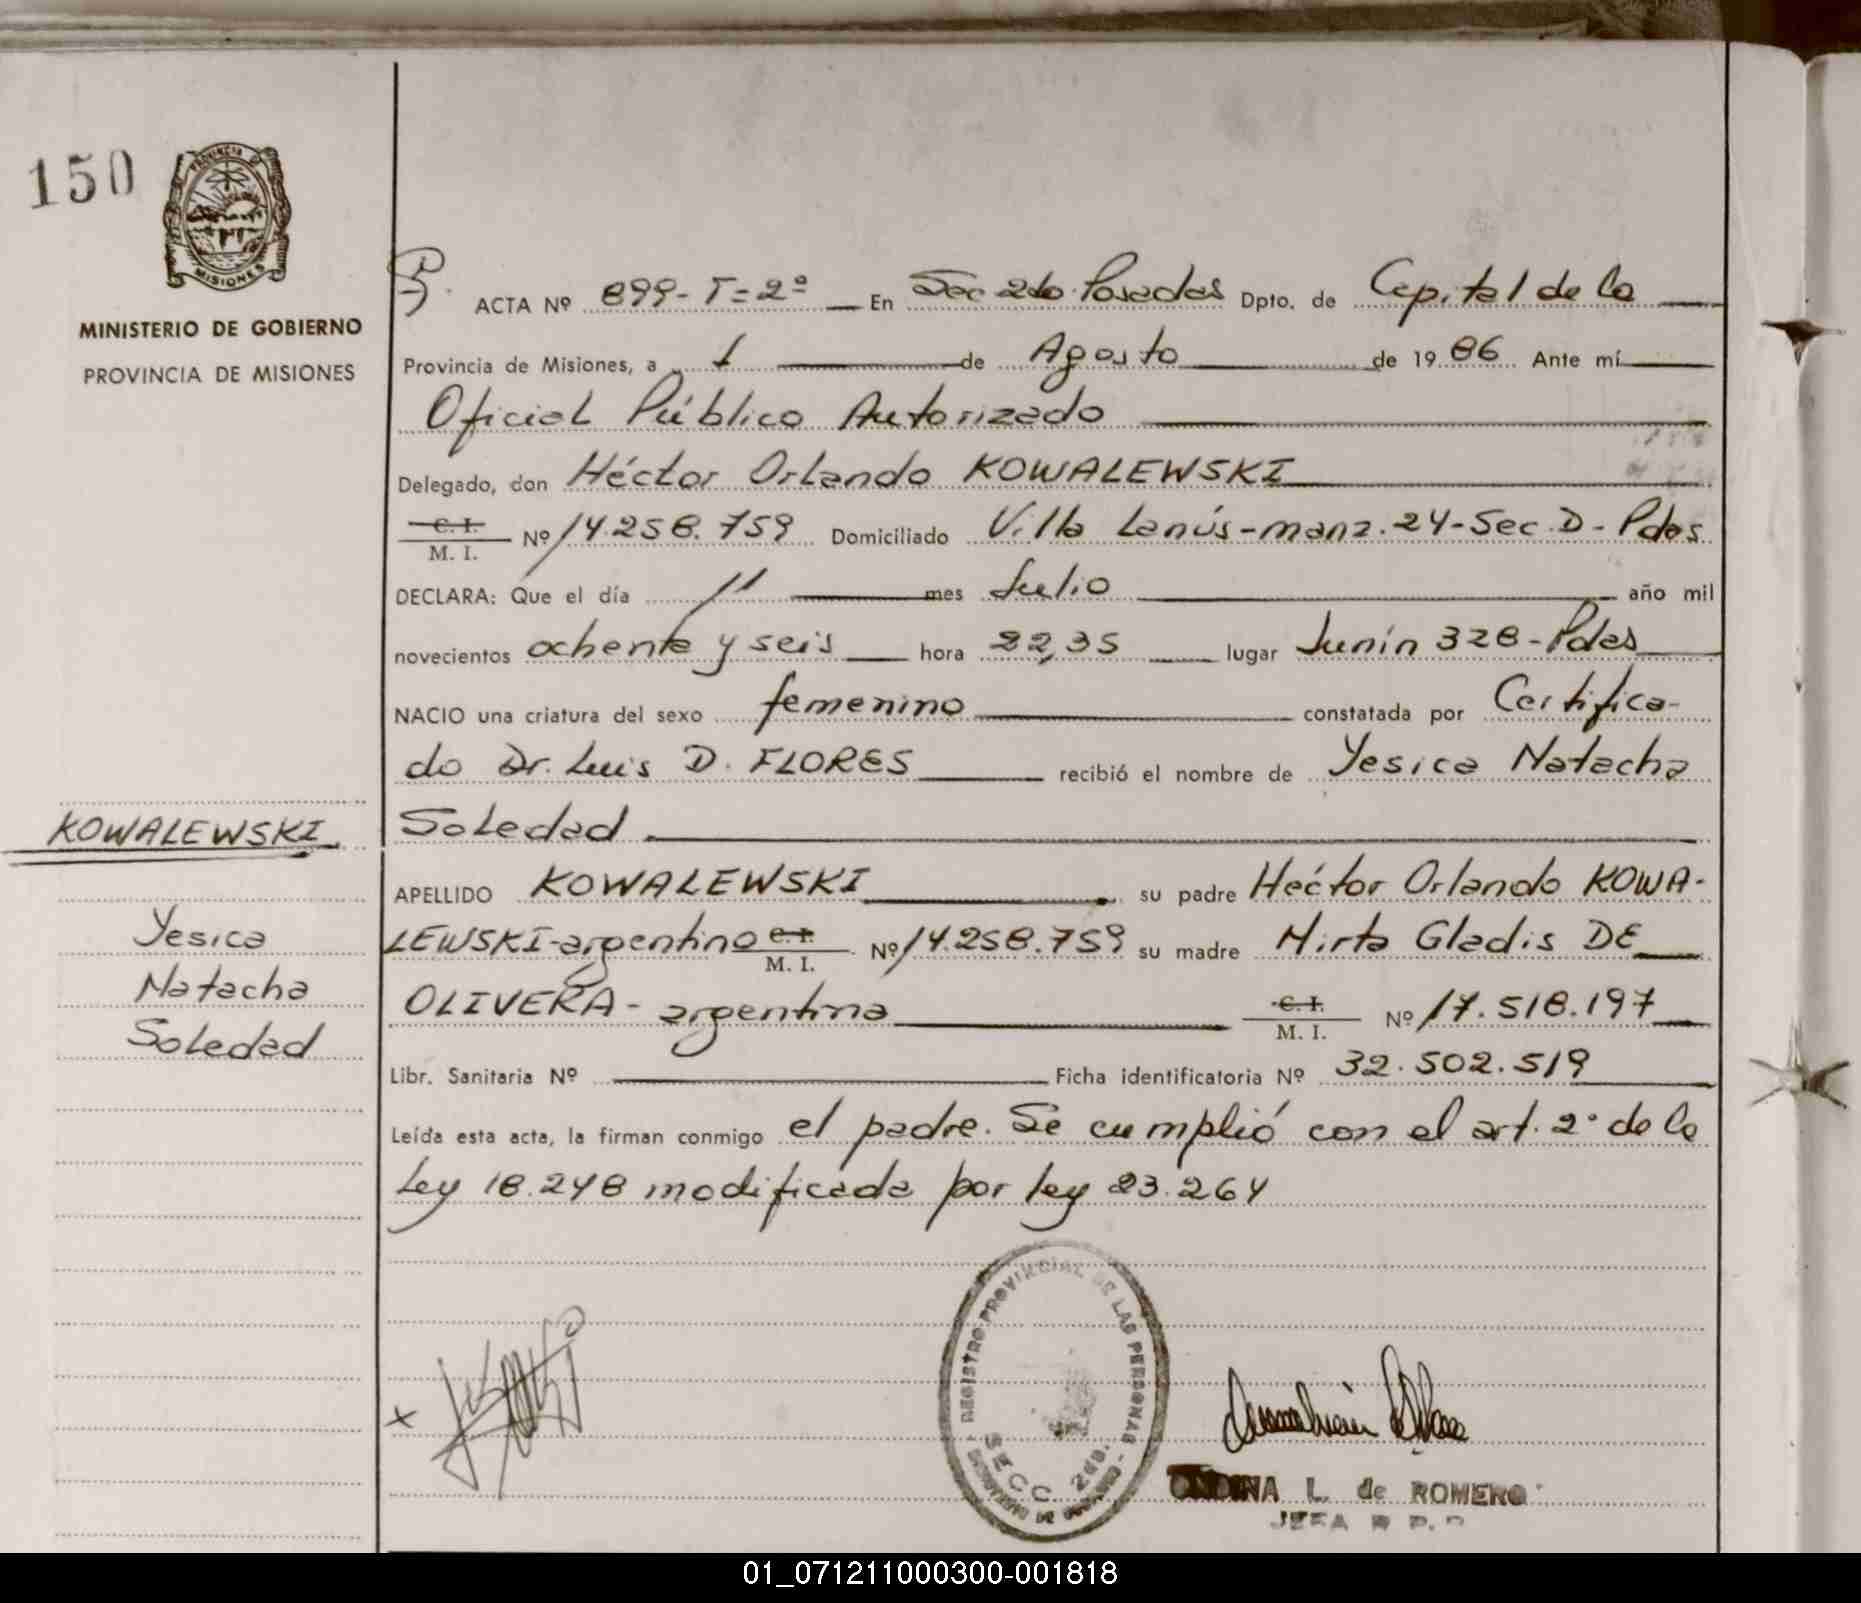 150
PROVINCIA D
MISIONES
MINISTERIO DE GOBIERNO
PROVINCIA DE MISIONES
ACTA Nº 899-T=2º En Sec 2da Posadas Dpto. de Capital de la
Provincia de Misiones, a 1 de Agosto de 1986 Ante mí
Oficial Público Autorizado
Delegado, don Héctor Orlando KOWALEWSKI
C. I.
M. I. Nº 14.258.759 Domiciliado Villa Lanús-manz.24-Sec.D-Pdas
DECLARA: Que el día 11 mes Julio año mil
novecientos ochenta y seis hora 22,35 lugar Junín 328-Pdas
NACIO una criatura del sexo femenino constatada por Certifica-
do Dr. Luis D. FLORES recibió el nombre de Yesica Natacha
Soledad
KOWALEWSKI
Yesica
Natacha
Soledad
APELLIDO KOWALEWSKI su padre Héctor Orlando KOWA-
LEWSKI-argentino C. I.
M. I. Nº 14.258.759 su madre Mirta Gladis DE
OLIVERA-argentina C. I.
M. I. Nº 17.518.197
Libr. Sanitaria Nº Ficha identificatoria Nº 32.502.519
Leída esta acta, la firman conmigo el padre. Se cumplió con el art. 2º de la
Ley 18.248 modificada por ley 23.264
REGISTRO PROVINCIAL DE LAS PERSONAS
SECC. 2da.
ONDINA L. de ROMERO
JEFA R P. P
01_071211000300-001818